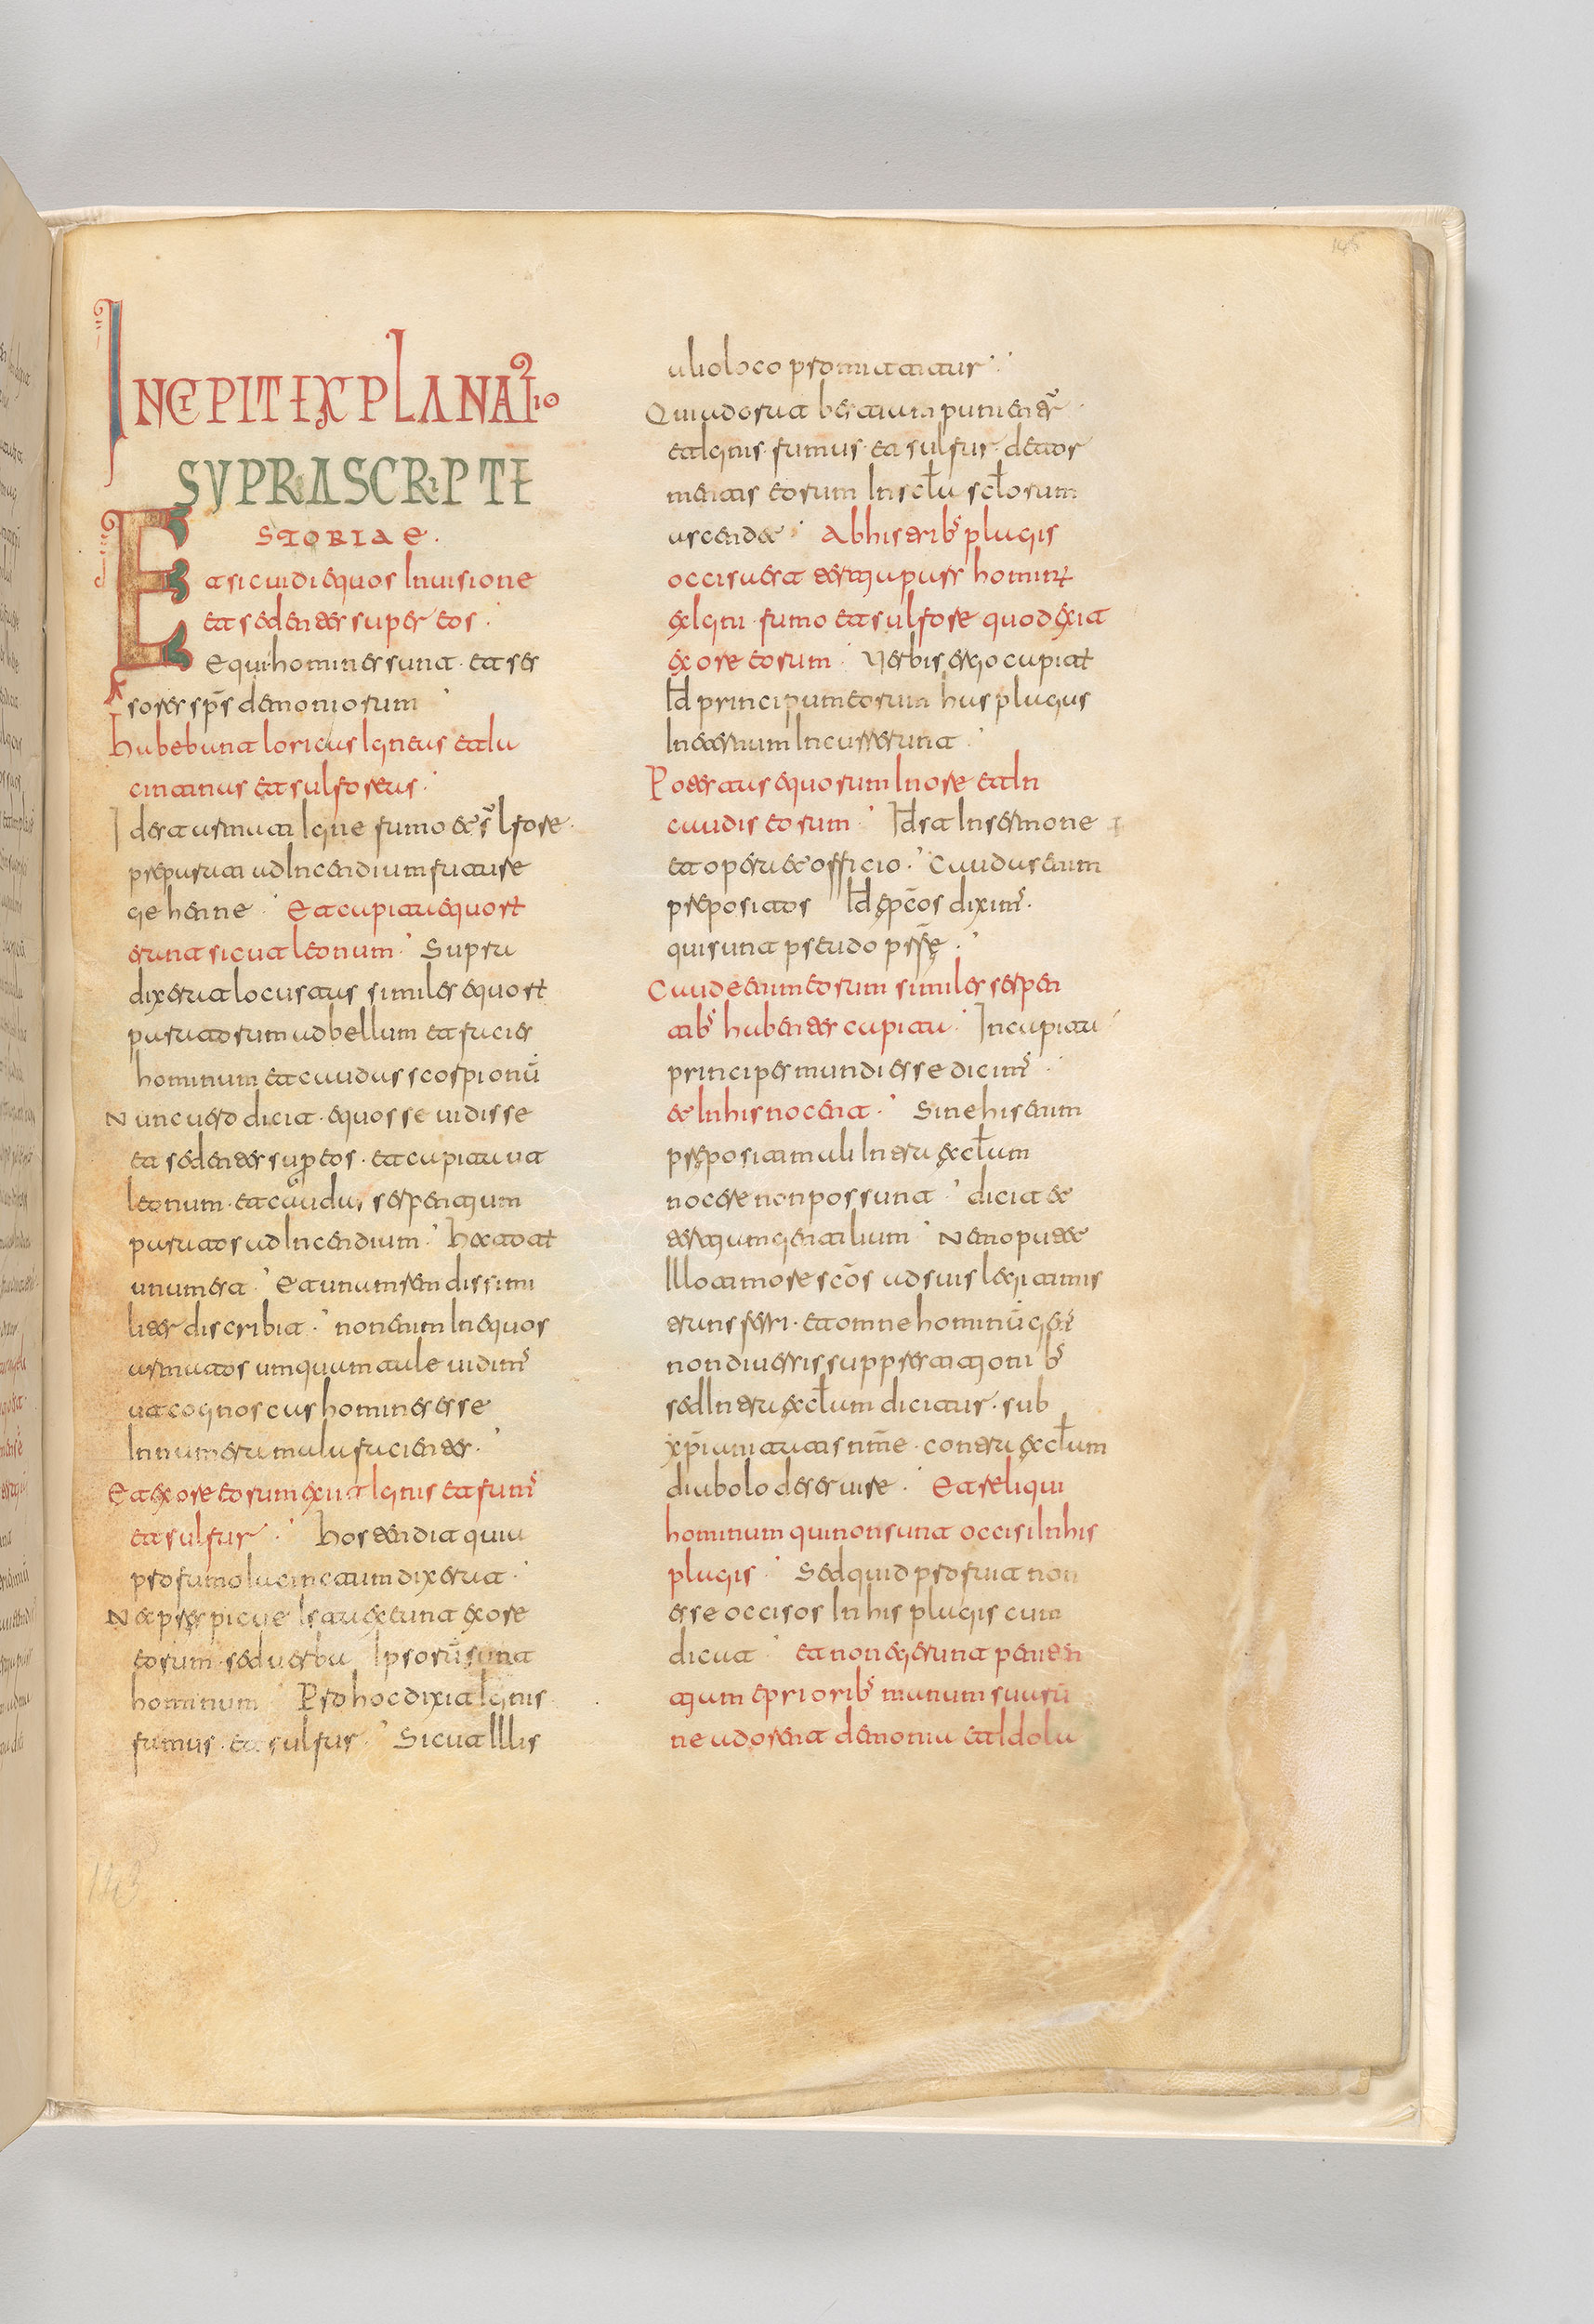 INCIPIT EXPLANATIO
SUPRASCRIPTE
STORIAE.
Et sic uidi equos In uisione
et sedentes super eos.
Equi homines sunt. et ses
sores sp̄s demoniorum
habebant loricas Igneas et Ia
cintinas et sulforeas.
Id est armati Igne fumo et sulfore.
preparati ad Incendium future
gehenne. Et capita equorum
erunt sicut leonum. Supra
dixerat locustas similes equorum
paratorum ad bellum et facies
hominum et caudas scorpionū
Nunc uero dicit. equos se uidisse
et sedentes super eos. et capita ut
leonum. et caudas serpentium
paratos ad Incendium. hec totum
unum est. Et unum rem dissimi
liter discribit. non enim In equos
armatos umquam tale uidims
ut cognoscas homines esse
Innumera mala facientes.
Et ex ore eorum exiit Ignis et fums
et sulfur. hostendit quia
pro fumo Iacinctum dixerat.
Ne perspicue Ista exeunt ex ore
eorum. sed uerba Ipsorū sunt
hominum Pro hoc dixit Ignis
fumus. et sulfur. Sicut Illis
alio loco promittitur.
Qui adorat bestium punientr
et Ignis. fumus. et sulfur. de tor
mentis eorum In scl̄a scl̄orum
ascendet. Ab his tribs plagis
occisa est tertia pars hominum
ex Igni. fumo et sulfore quod exit
ex ore eorum. Uerbis ergo capitum
Id principum eorum has plagas
In eternum Incusserunt.
Potestas equorum In ore et In
caudis eorum. Id est In sermone
et opera et officio. Caudas enim
prepositos Id epc̄os diximus.
qui sunt pseudo prf̄e.
Caude enim eorum similes serpen
tibs habentes capita. In capita
principes mundi esse dicims.
et In his nocent. Sine his enim
prepositi mali Intra ecl̄am
nocere non possunt. dicit et
tertium gentilium Nemo putet
Illo timore scōs ad suis legitimis
trans ferri. et omne hominū gens
non diuersis supprestitionibs
sed Intra ecl̄am dicitur. sub
xp̄ianitatis nm̄e. contra ecl̄am
diabolo deseruire. Et reliqui
hominum qui non sunt occisi In his
plagis. Sed quid profuit non
esse occisos In his plagis cum
dicat et non egerunt peniten
tium e prioribs manum suarū
ne adorent demonia et Idola
145
143